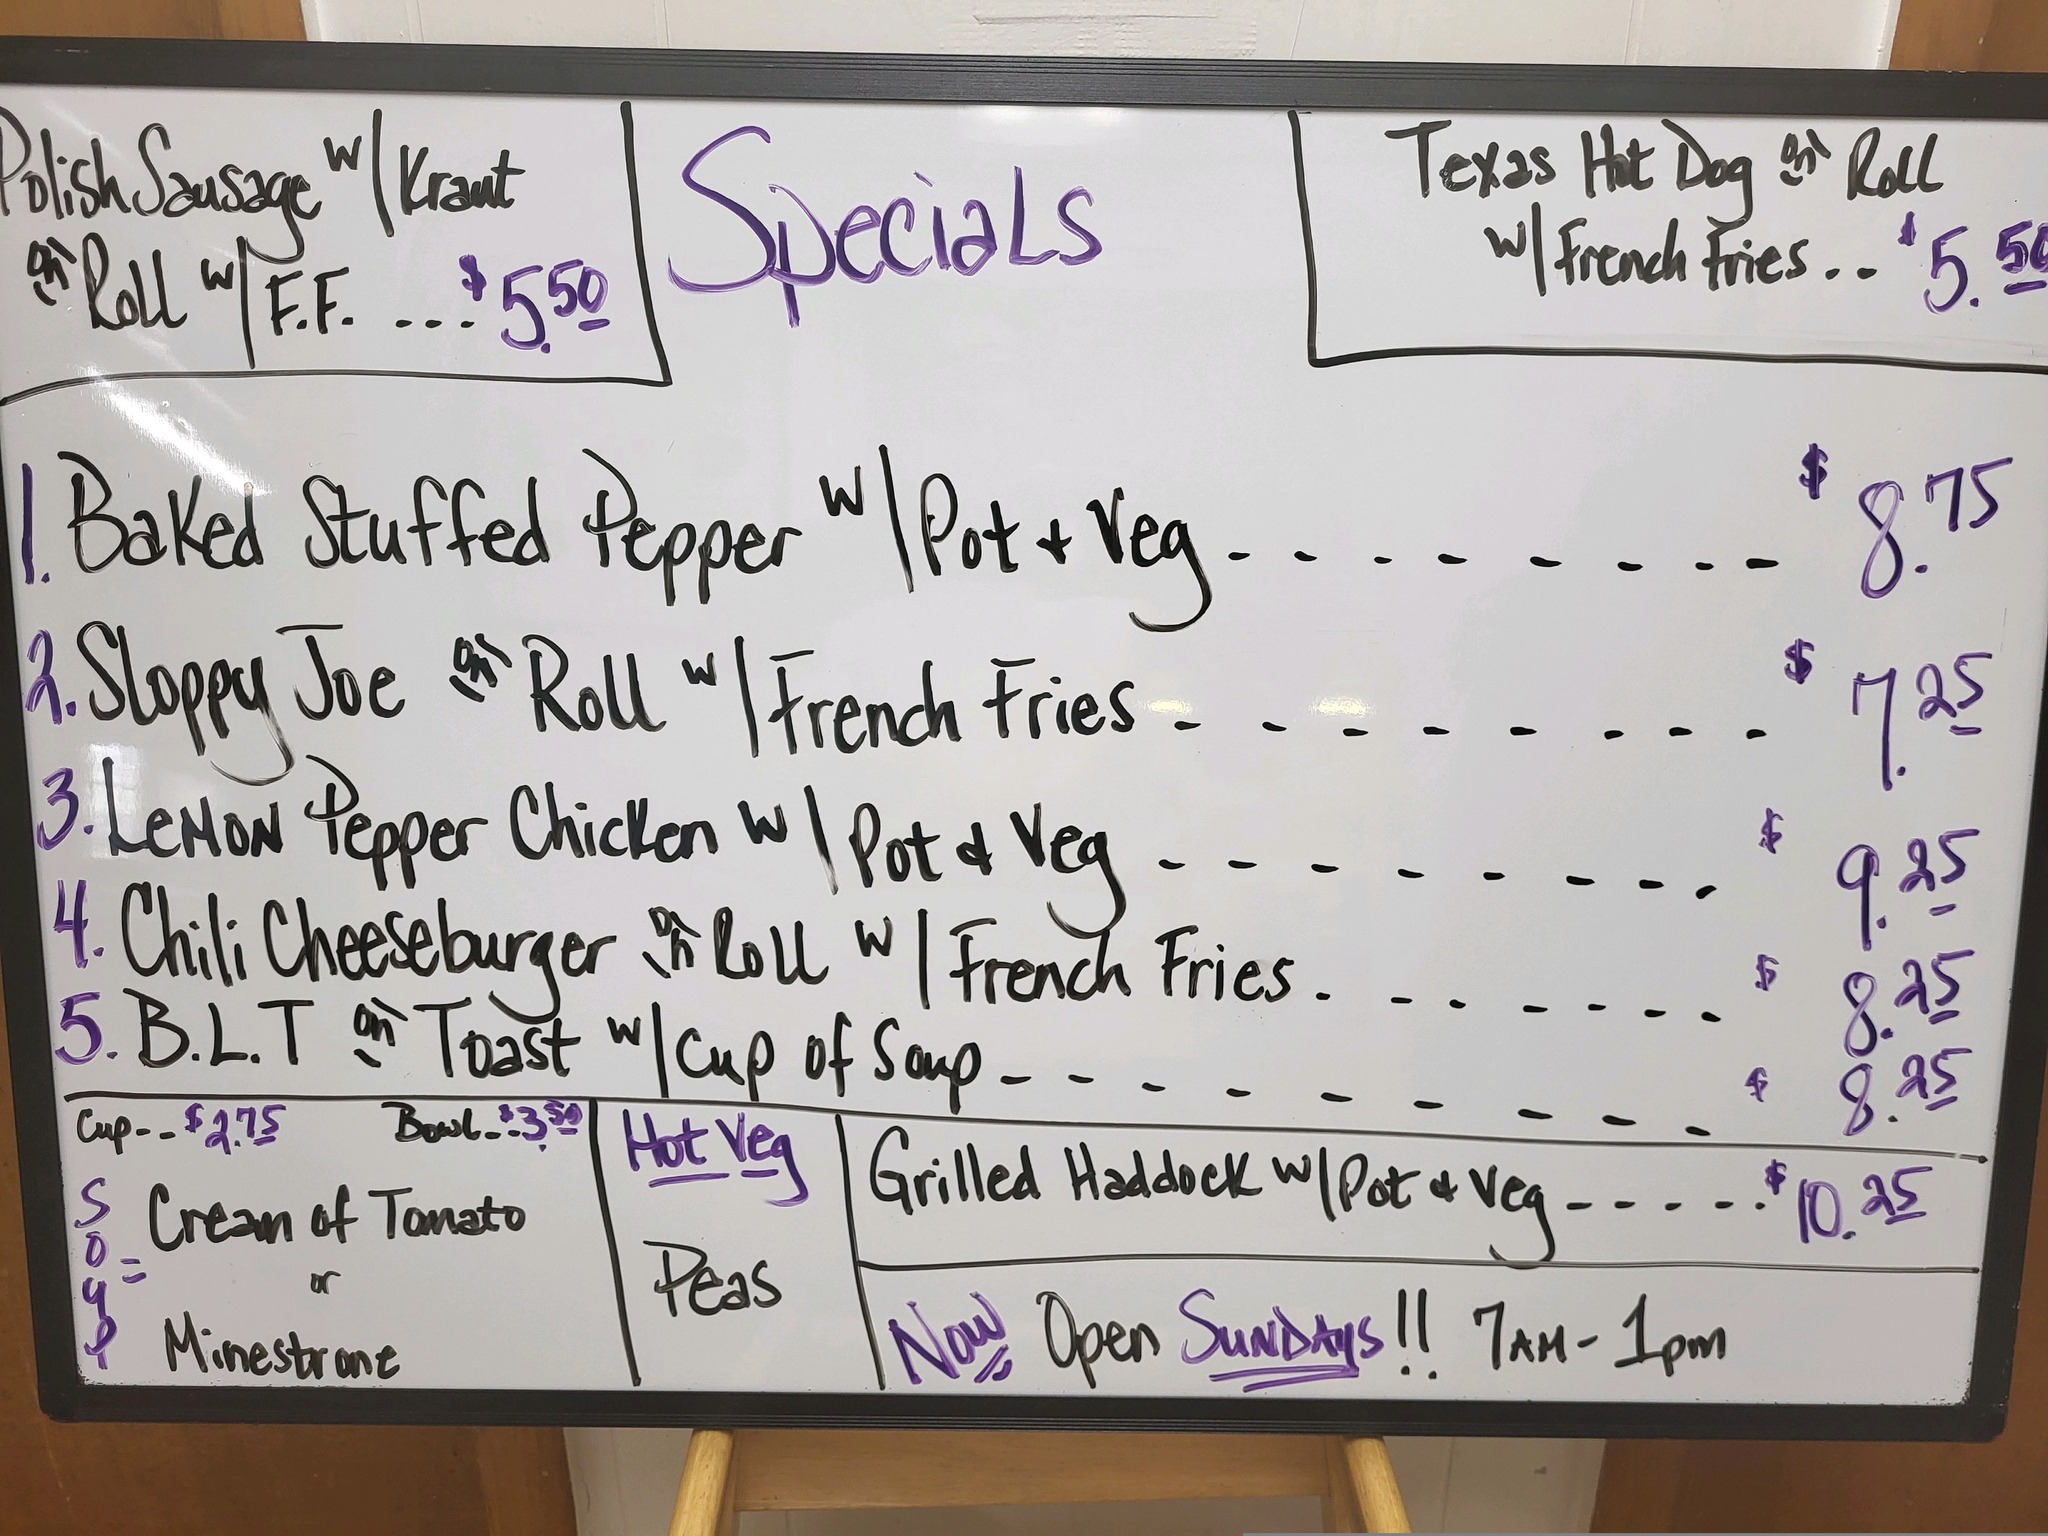 Polish Sausage w/Kraut
on Roll w/F.F. ... $5.50
Specials
Texas Hot Dog on Roll
w/French Fries... $5.50
1. Baked Stuffed Pepper w/Pot + Veg - - - - - - - - $8.75
2. Sloppy Joe on Roll w/French Fries - - - - - - - - $7.25
3. Lemon Pepper Chicken w/Pot & Veg - - - - - - - - $9.25
4. Chili Cheeseburger on Roll w/French Fries - - - - - - $8.25
5. B.L.T on Toast w/Cup of Soup - - - - - - - - $8.25
Cup-- $2.75 Bowl--$3.50
Soup =
Cream of Tomato
or
Minestrone
Hot Veg
Peas
Grilled Haddock w/Pot & Veg - - - - - $10.25
Now Open Sundays!! 7AM-1pm